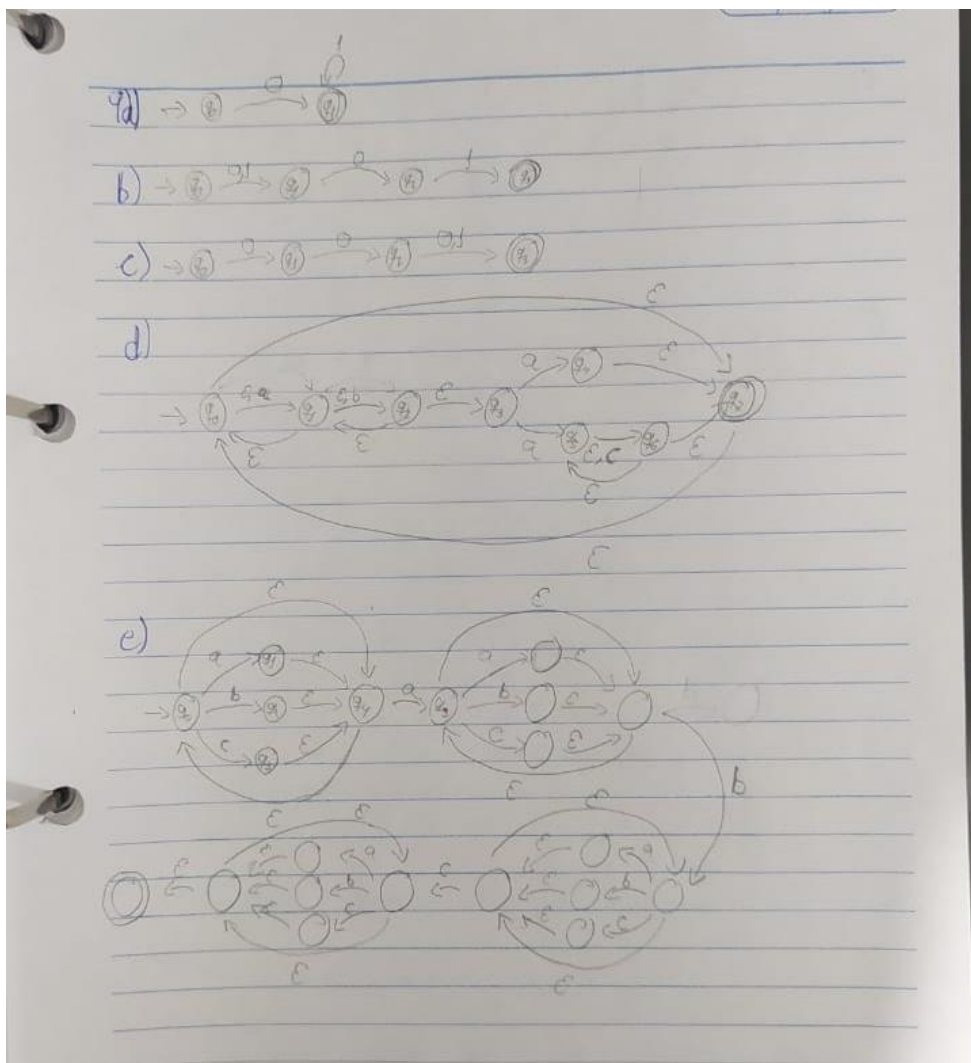 1
9a) → q0 0 q1
b) → q0 0,1 q1 0 q2 1 q3
c) → q0 0 q1 0 q2 0,1 q3
d)
ε
a q4 ε
→ q0 q1 q2 ε q3 q7
ε ε a q5 q6 ε
ε
ε
e)
ε ε
a q1 ε a ε
→ q0 b q2 ε q4 a q5 b ε
c q3 ε c ε
ε ε b
ε ε
ε a ε a
ε ε b ε ε b
ε c ε c
ε ε